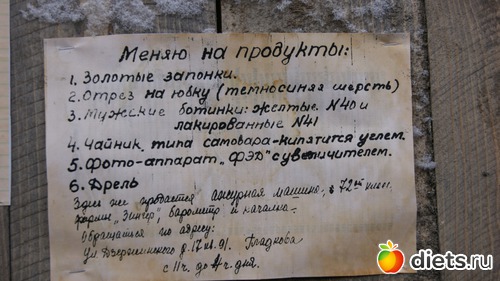 Меняю на продукты:
1. Золотые запонки.
2. Отрез на юбку (темносиняя шерсть)
3. Мужские ботинки: желтые N40 и
лакированные N41
4. Чайник типа самовара-кипятится углем.
5. Фото-аппарат „ФЭД" с увеличителем.
6. Дрель
Здесь же продается ажурная машина, в 72 класс.
фирмы „Зингер", барометр и качалка.
Обращаться по адресу:
ул Дзержинского д. 17 кв. 91. Гладкова
с 11 ч. до 4 ч. дня.
diets.ru